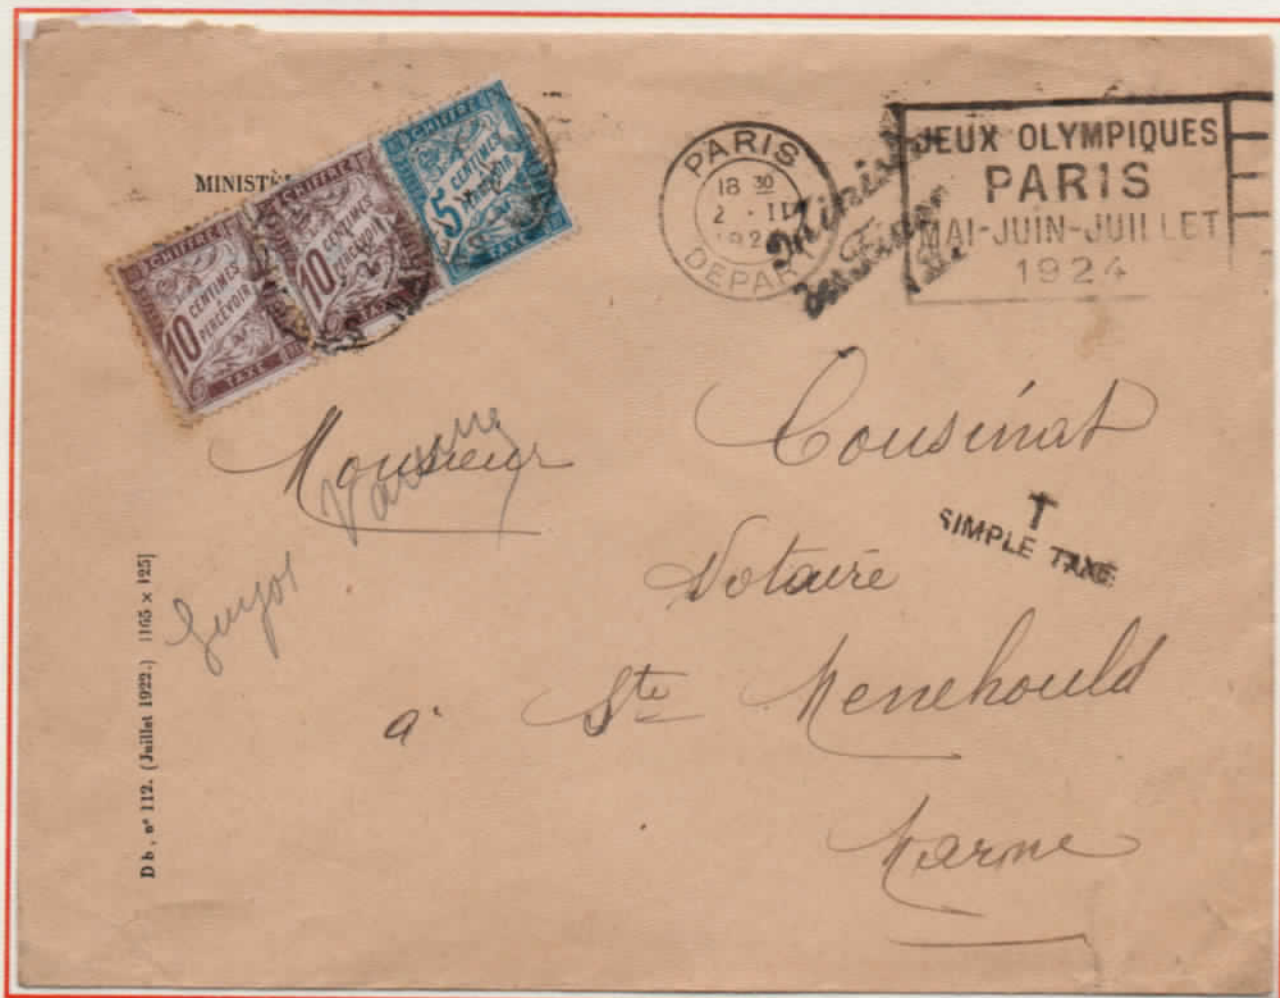 MINISTÈ
CHIFFRE
10 CENTIMES
PERCEVOIR
TAXE
CHIFFRE
10 CENTIMES
PERCEVOIR
TAXE
CHIFFRE
5 CENTIMES
TAXE
PARIS
18 30
2 · II
192
DEPART
Ministè
des Finan
JEUX OLYMPIQUES
PARIS
MAI-JUIN-JUILLET
1924
Monsieur Cousinat
T
SIMPLE TAXE
Notaire
à Ste Menehould
Marne
Guyot
D b, nº 112. (Juillet 1922.) [165 × 125]